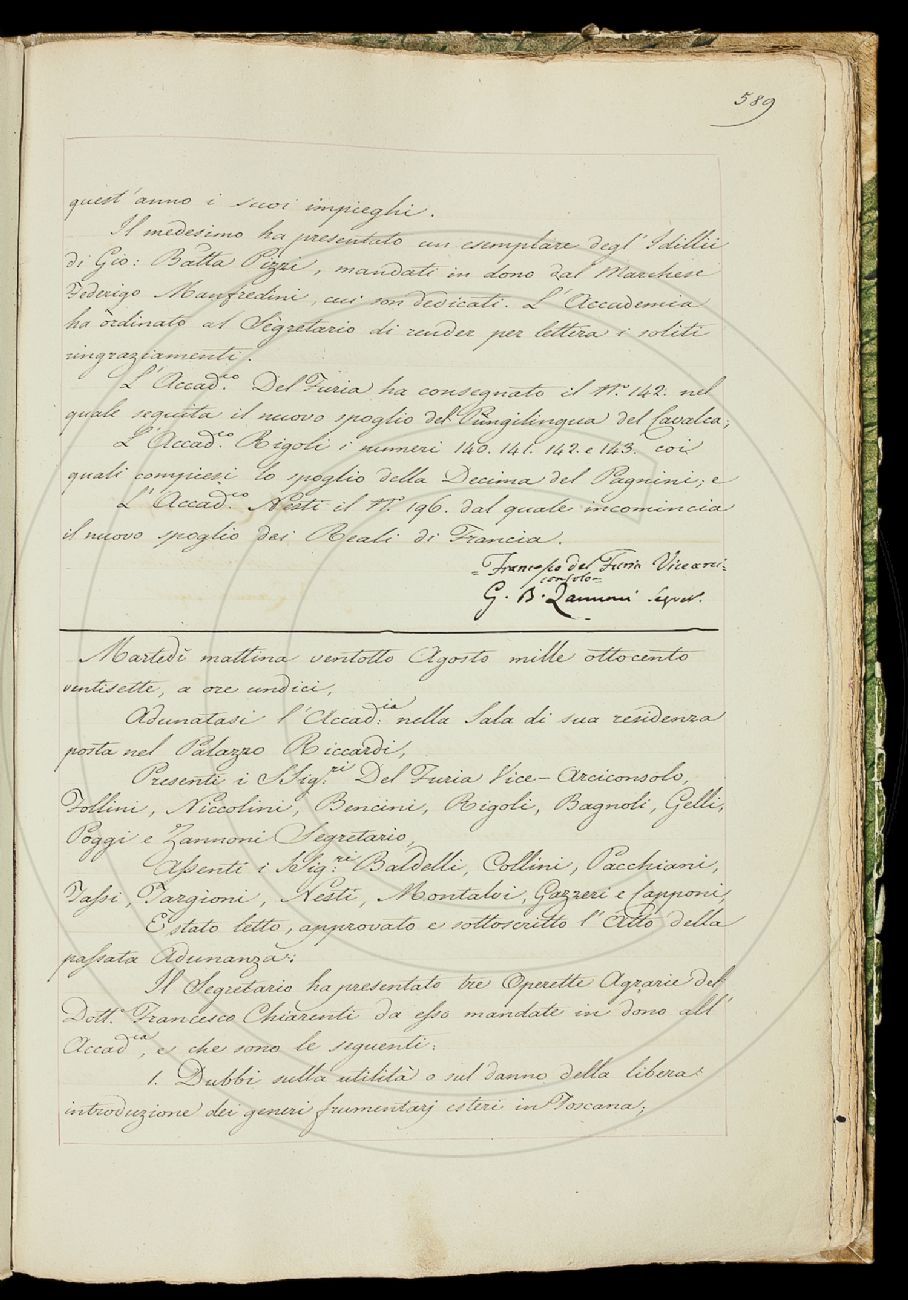 589
quest'anno i suoi impieghi.
Il medesimo ha presentato un esemplare degl'Idillii
di Gio: Batta Pizzi, mandati in dono dal Marchese
Federigo Manfredini, cui son dedicati. L'Accademia
ha ordinato al Segretario di render per lettera i soliti
ringraziamenti.
L'Accad.co Del Furia ha consegnato il N.º 142. nel
quale seguita il nuovo spoglio del Pungilingua del Cavalca;
L'Accad.co Rigoli i numeri 140. 141. 142. e 143. coi
quali compiesi lo spoglio della Decima del Pagnini; e
L'Accad.co Nesti il N.º 196. dal quale incomincia
il nuovo spoglio dei Reali di Francia.
=Francesco del Furia Vicearci=
consolo=
G. B. Zannoni Segret.
Martedì mattina ventotto Agosto mille ottocento
ventisette, a ore undici,
Adunatasi l'Accad.ia nella Sala di sua residenza
posta nel Palazzo Riccardi,
Presenti i SSig.ri Del Furia Vice-Arciconsolo,
Follini, Niccolini, Bencini, Rigoli, Bagnoli, Gelli,
Poggi e Zannoni Segretario,
Assenti i SSig.ri Baldelli, Collini, Pacchiani,
Tassi, Targioni, Nesti, Montalvi, Gazzeri e Capponi,
E' stato letto, approvato e sottoscritto l'Atto della
passata Adunanza:
Il Segretario ha presentato tre Operette Agrarie del
Dott.e Francesco Chiarenti da esso mandate in dono all'
Accad.ia, e che sono le seguenti:
1. Dubbi sulla utilità o sul danno della libera
introduzione dei generi frumentarj esteri in Toscana;